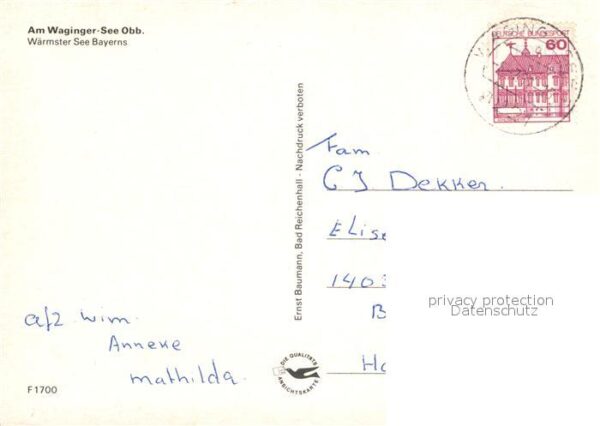 Am Waginger-See Obb.
Wärmster See Bayerns
DEUTSCHE BUNDESPOST
60
WAGING
Ernst Baumann, Bad Reichenhall - Nachdruck verboten
Fam
CJ Dekker.
Elise
1403
B
Ho
privacy protection
Datenschutz
afz Wim.
Anneke
Mathilda.
DIE QUALITÄTS
ANSICHTSKARTE
F1700